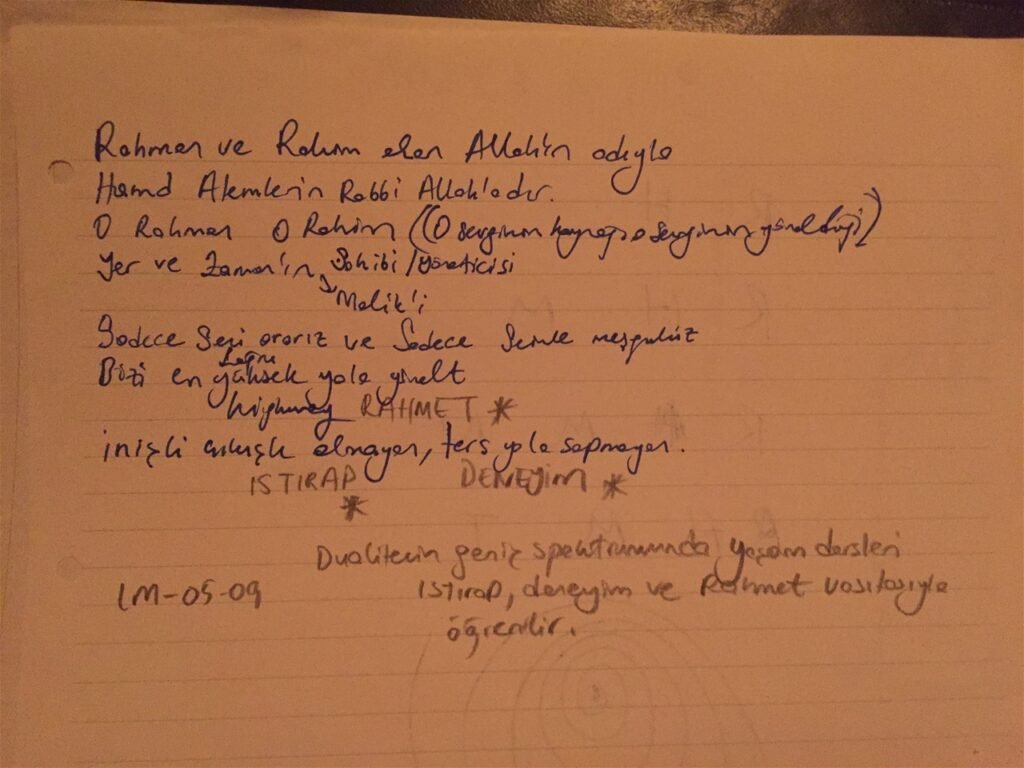 Rahman ve Rahim olan Allah'ın adıyla
Hamd Alemlerin Rabbi Allah'adır.
O Rahman O Rahim (O sevginin kaynağı o sevginin yöneldiği)
Yer ve Zaman'ın Sahibi/yöneticisi
Malik'i
Sadece Seni ararız ve Sadece Seninle meşgulüz
doğru
Bizi en yüksek yola yönelt
highway RAHMET *
inişli çıkışlı olmayan, ters yola sapmayan.
ISTIRAP DENEYİM *
*
Dualitenin geniş spektrumunda yaşam dersleri
LM-05-09 ISTIRAP, deneyim ve Rahmet vasıtasıyla
öğrenilir.